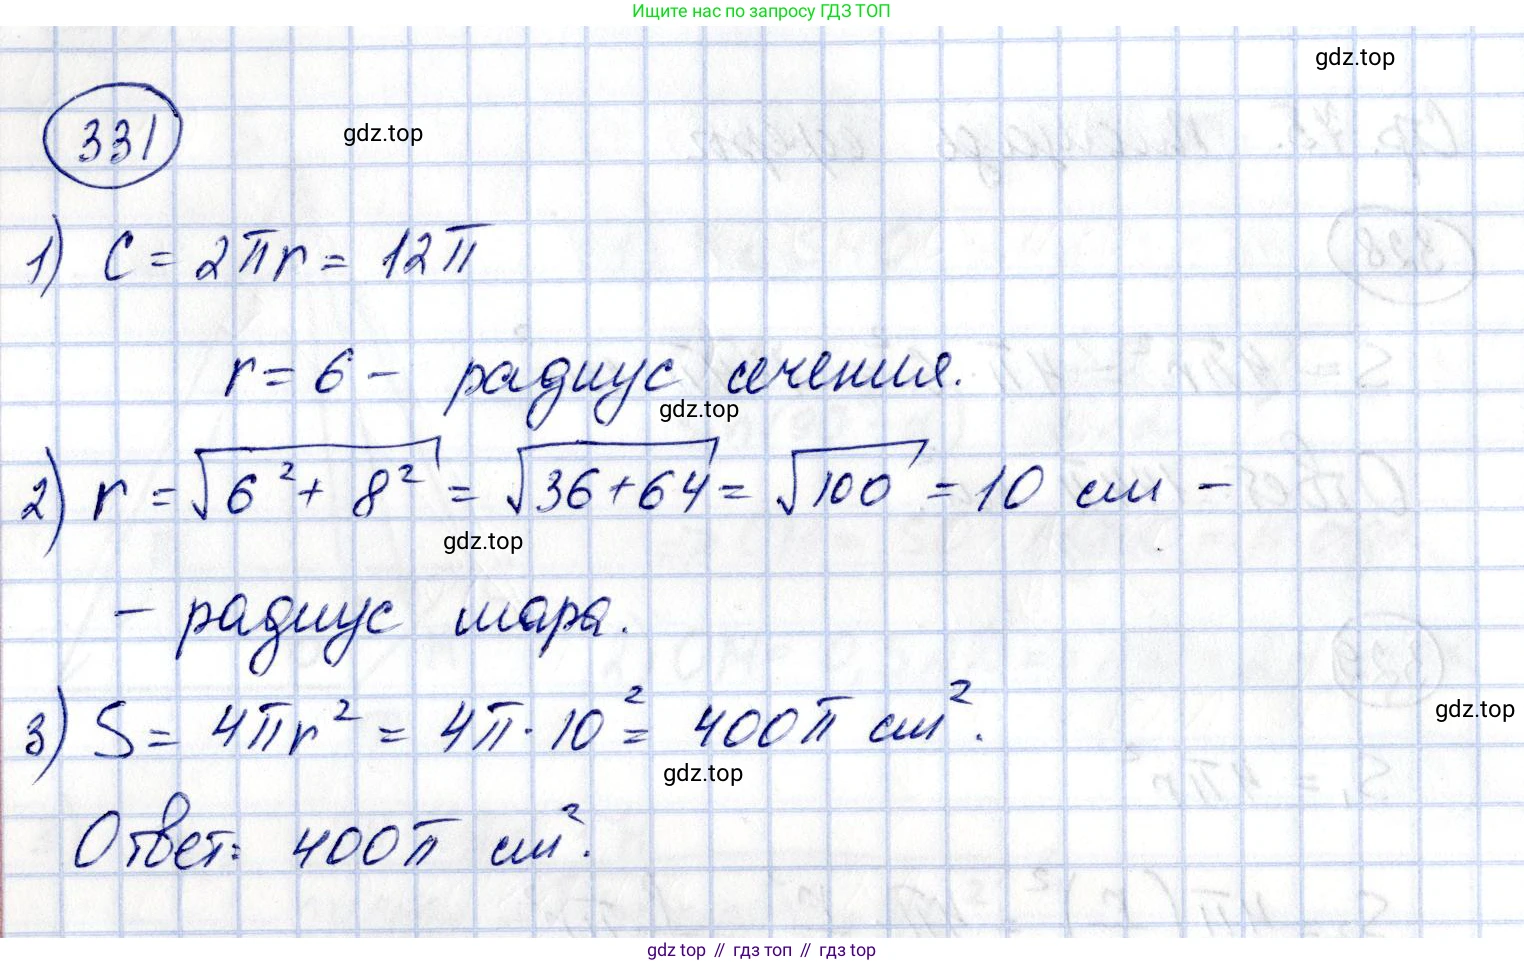 Ищите нас по запросу ГДЗ ТОП
gdz.top
331
gdz.top
1) C = 2πr = 12π
r = 6 - радиус сечения.
gdz.top
2) r = √6² + 8² = √36+64 = √100 = 10 см -
gdz.top
- радиус шара.
3) S = 4πr² = 4π · 10² = 400π см².
gdz.top
gdz.top
Ответ: 400π см².
gdz.top // гдз топ // гдз top